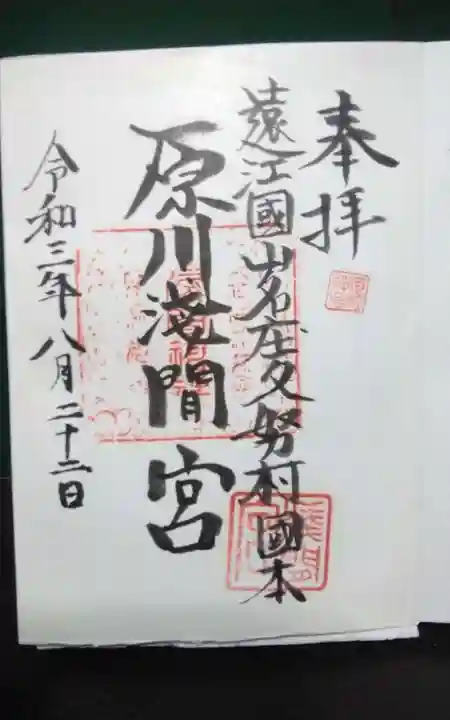 奉拝
遠江國山名庄久努村國本
原川淺間宮
令和三年八月二十二日